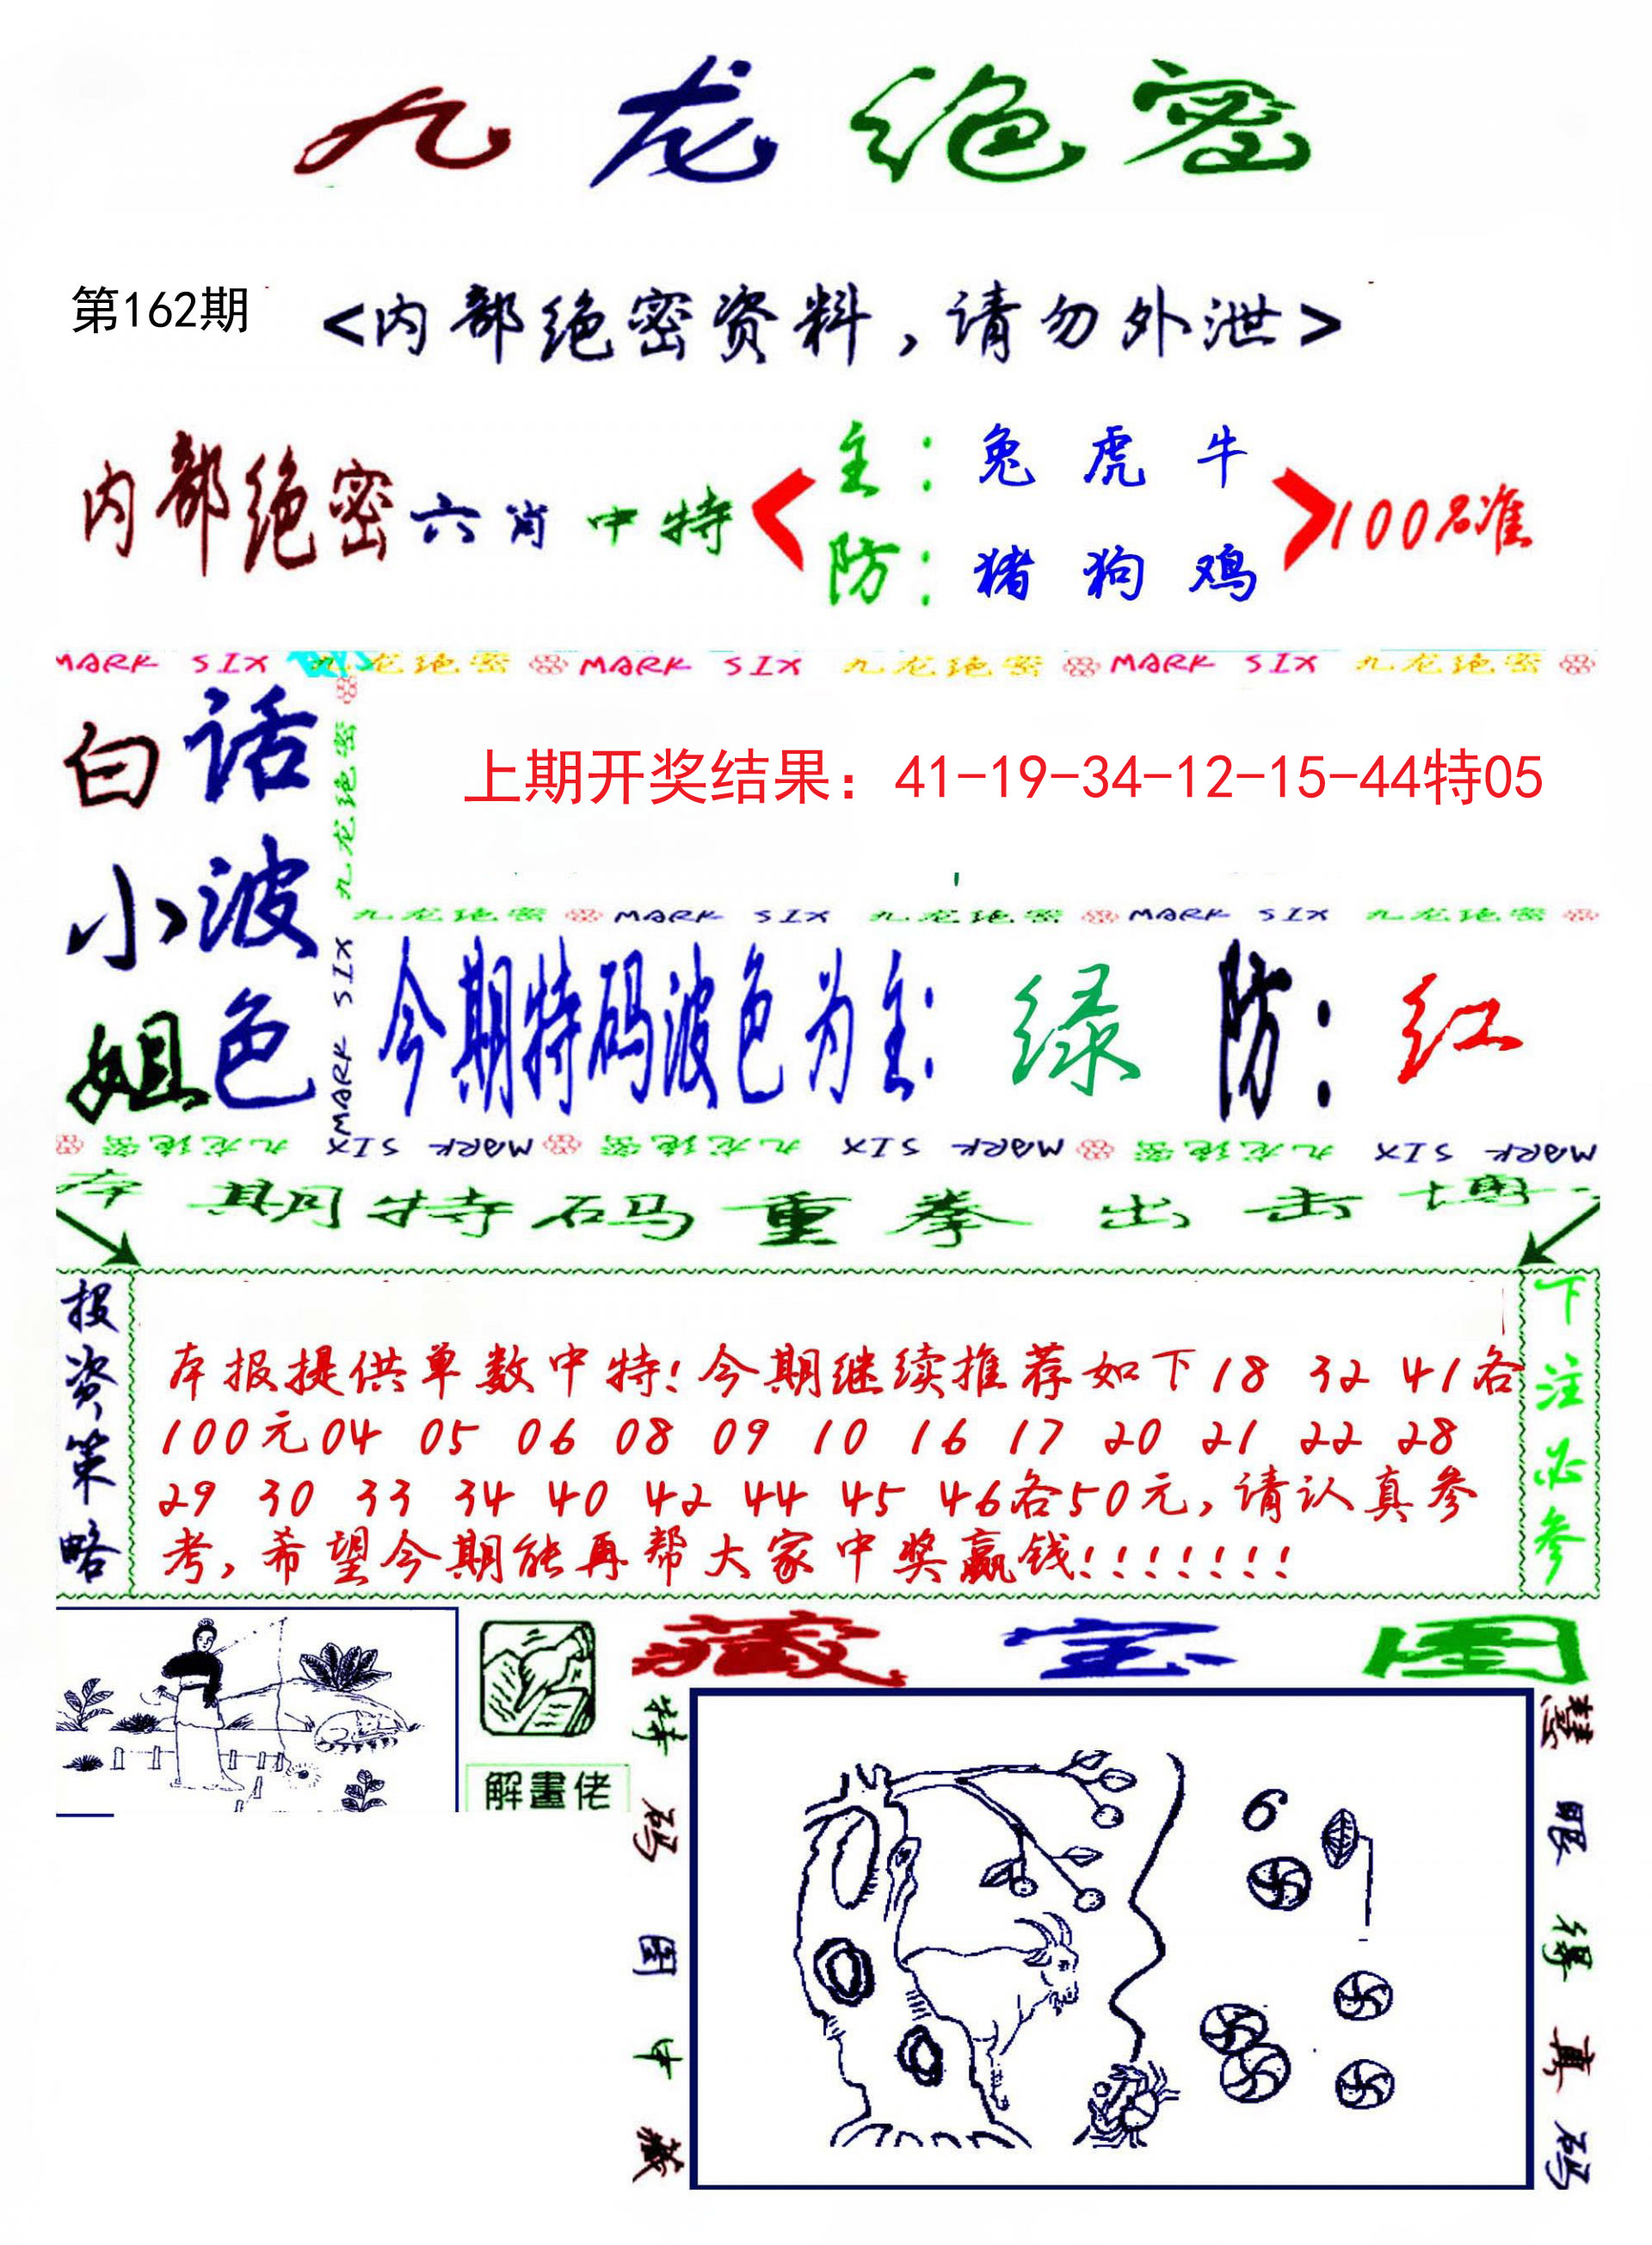 九龙绝密
第162期
<内部绝密资料,请勿外泄>
内部绝密六肖中特
主:兔虎牛
防:猪狗鸡
100%准
MARK SIX 九龙绝密 MARK SIX 九龙绝密 MARK SIX 九龙绝密
白话
小波
姐色
九龙绝密
MARK SIX
上期开奖结果：41-19-34-12-15-44特05
九龙绝密 MARK SIX 九龙绝密 MARK SIX 九龙绝密
今期特码波色为主:绿 防:红
九龙绝密 MARK SIX 九龙绝密 MARK SIX 九龙绝密 MARK SIX
本期特码重拳出击博
投资策略
本报提供单数中特!今期继续推荐如下18 32 41各
100元04 05 06 08 09 10 16 17 20 21 22 28
29 30 33 34 40 42 44 45 46各50元,请认真参
考,希望今期能再帮大家中奖赢钱!!!!!!!
下注必参
解畫佬
藏宝图
特码图中藏
6
慧眼得真码